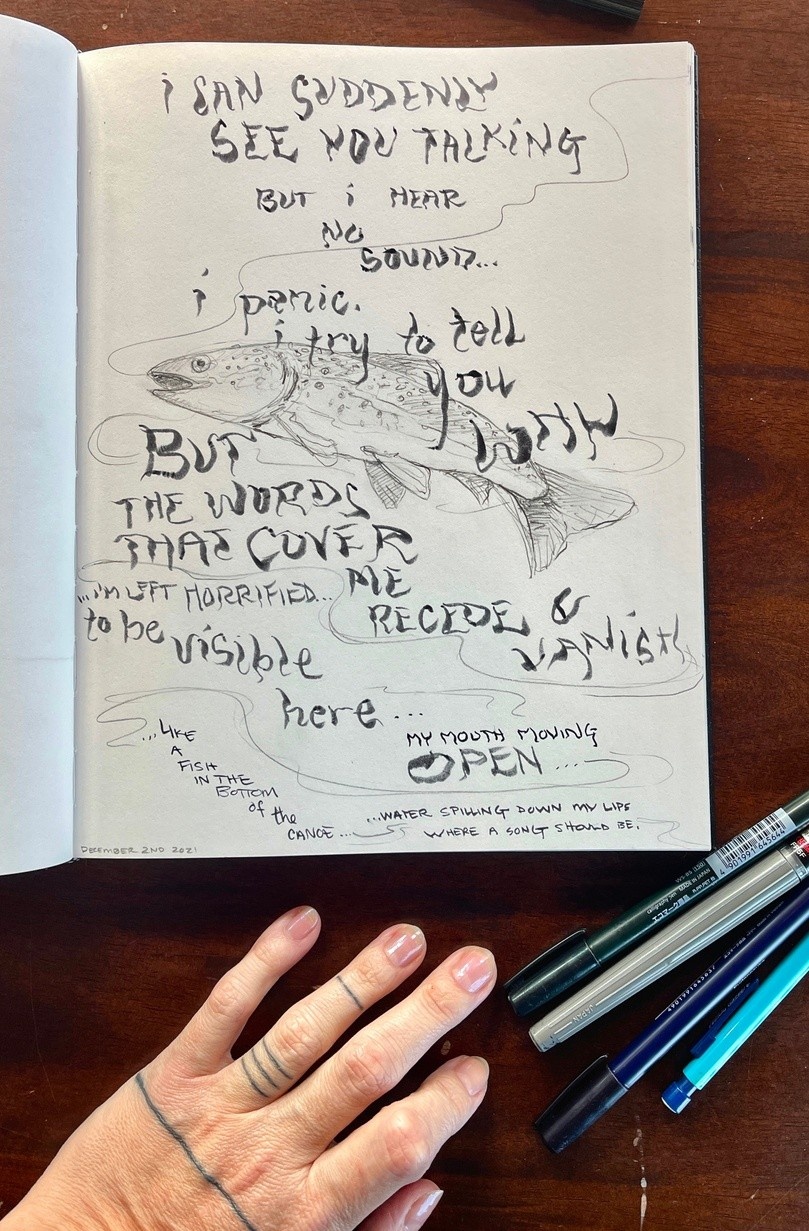 i CAN SUDDENLY
SEE YOU TALKiNG
BUT i HEAR
NO
SOUND...
i panic.
i try to tell
you
WHY
BUT
THE WORDS
THAT COVER
ME
RECEDE &
VANiSH
...i'M LEFT HORRIFIED...
to be
visible
here...
...LIKE
A
FISH
IN THE
BOTTOM
of the
CANOE...
MY MOUTH MOVING
OPEN...
...WATER SPILLING DOWN MY LIPS
WHERE A SONG SHOULD BE.
DECEMBER 2ND 2021
4 901991 645644
エコマーク商品
JAPAN